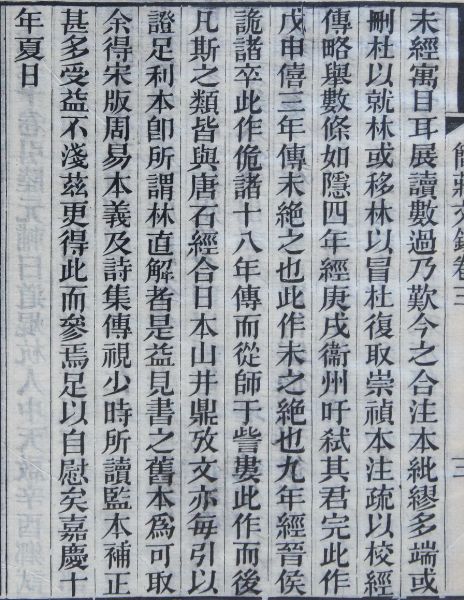 簡莊文鈔卷三 三
未經寓目耳展讀數過乃歎今之合注本紕繆多端或
刪杜以就林或移林以冒杜復取崇禎本注疏以校經
傳略舉數條如隱四年經庚戌衞州吁弒其君完此作
戊申僖三年傳未絕之也此作未之絕也九年經晉侯
詭諸卒此作佹諸十八年傳而從師于訾婁此作而後
凡斯之類皆與唐石經合日本山井鼎攷文亦每引以
證足利本卽所謂林直解者是益見書之舊本爲可取
余得宋版周易本義及詩集傳視少時所讀監本補正
甚多受益不淺茲更得此而參焉足以自慰矣嘉慶十
年夏日